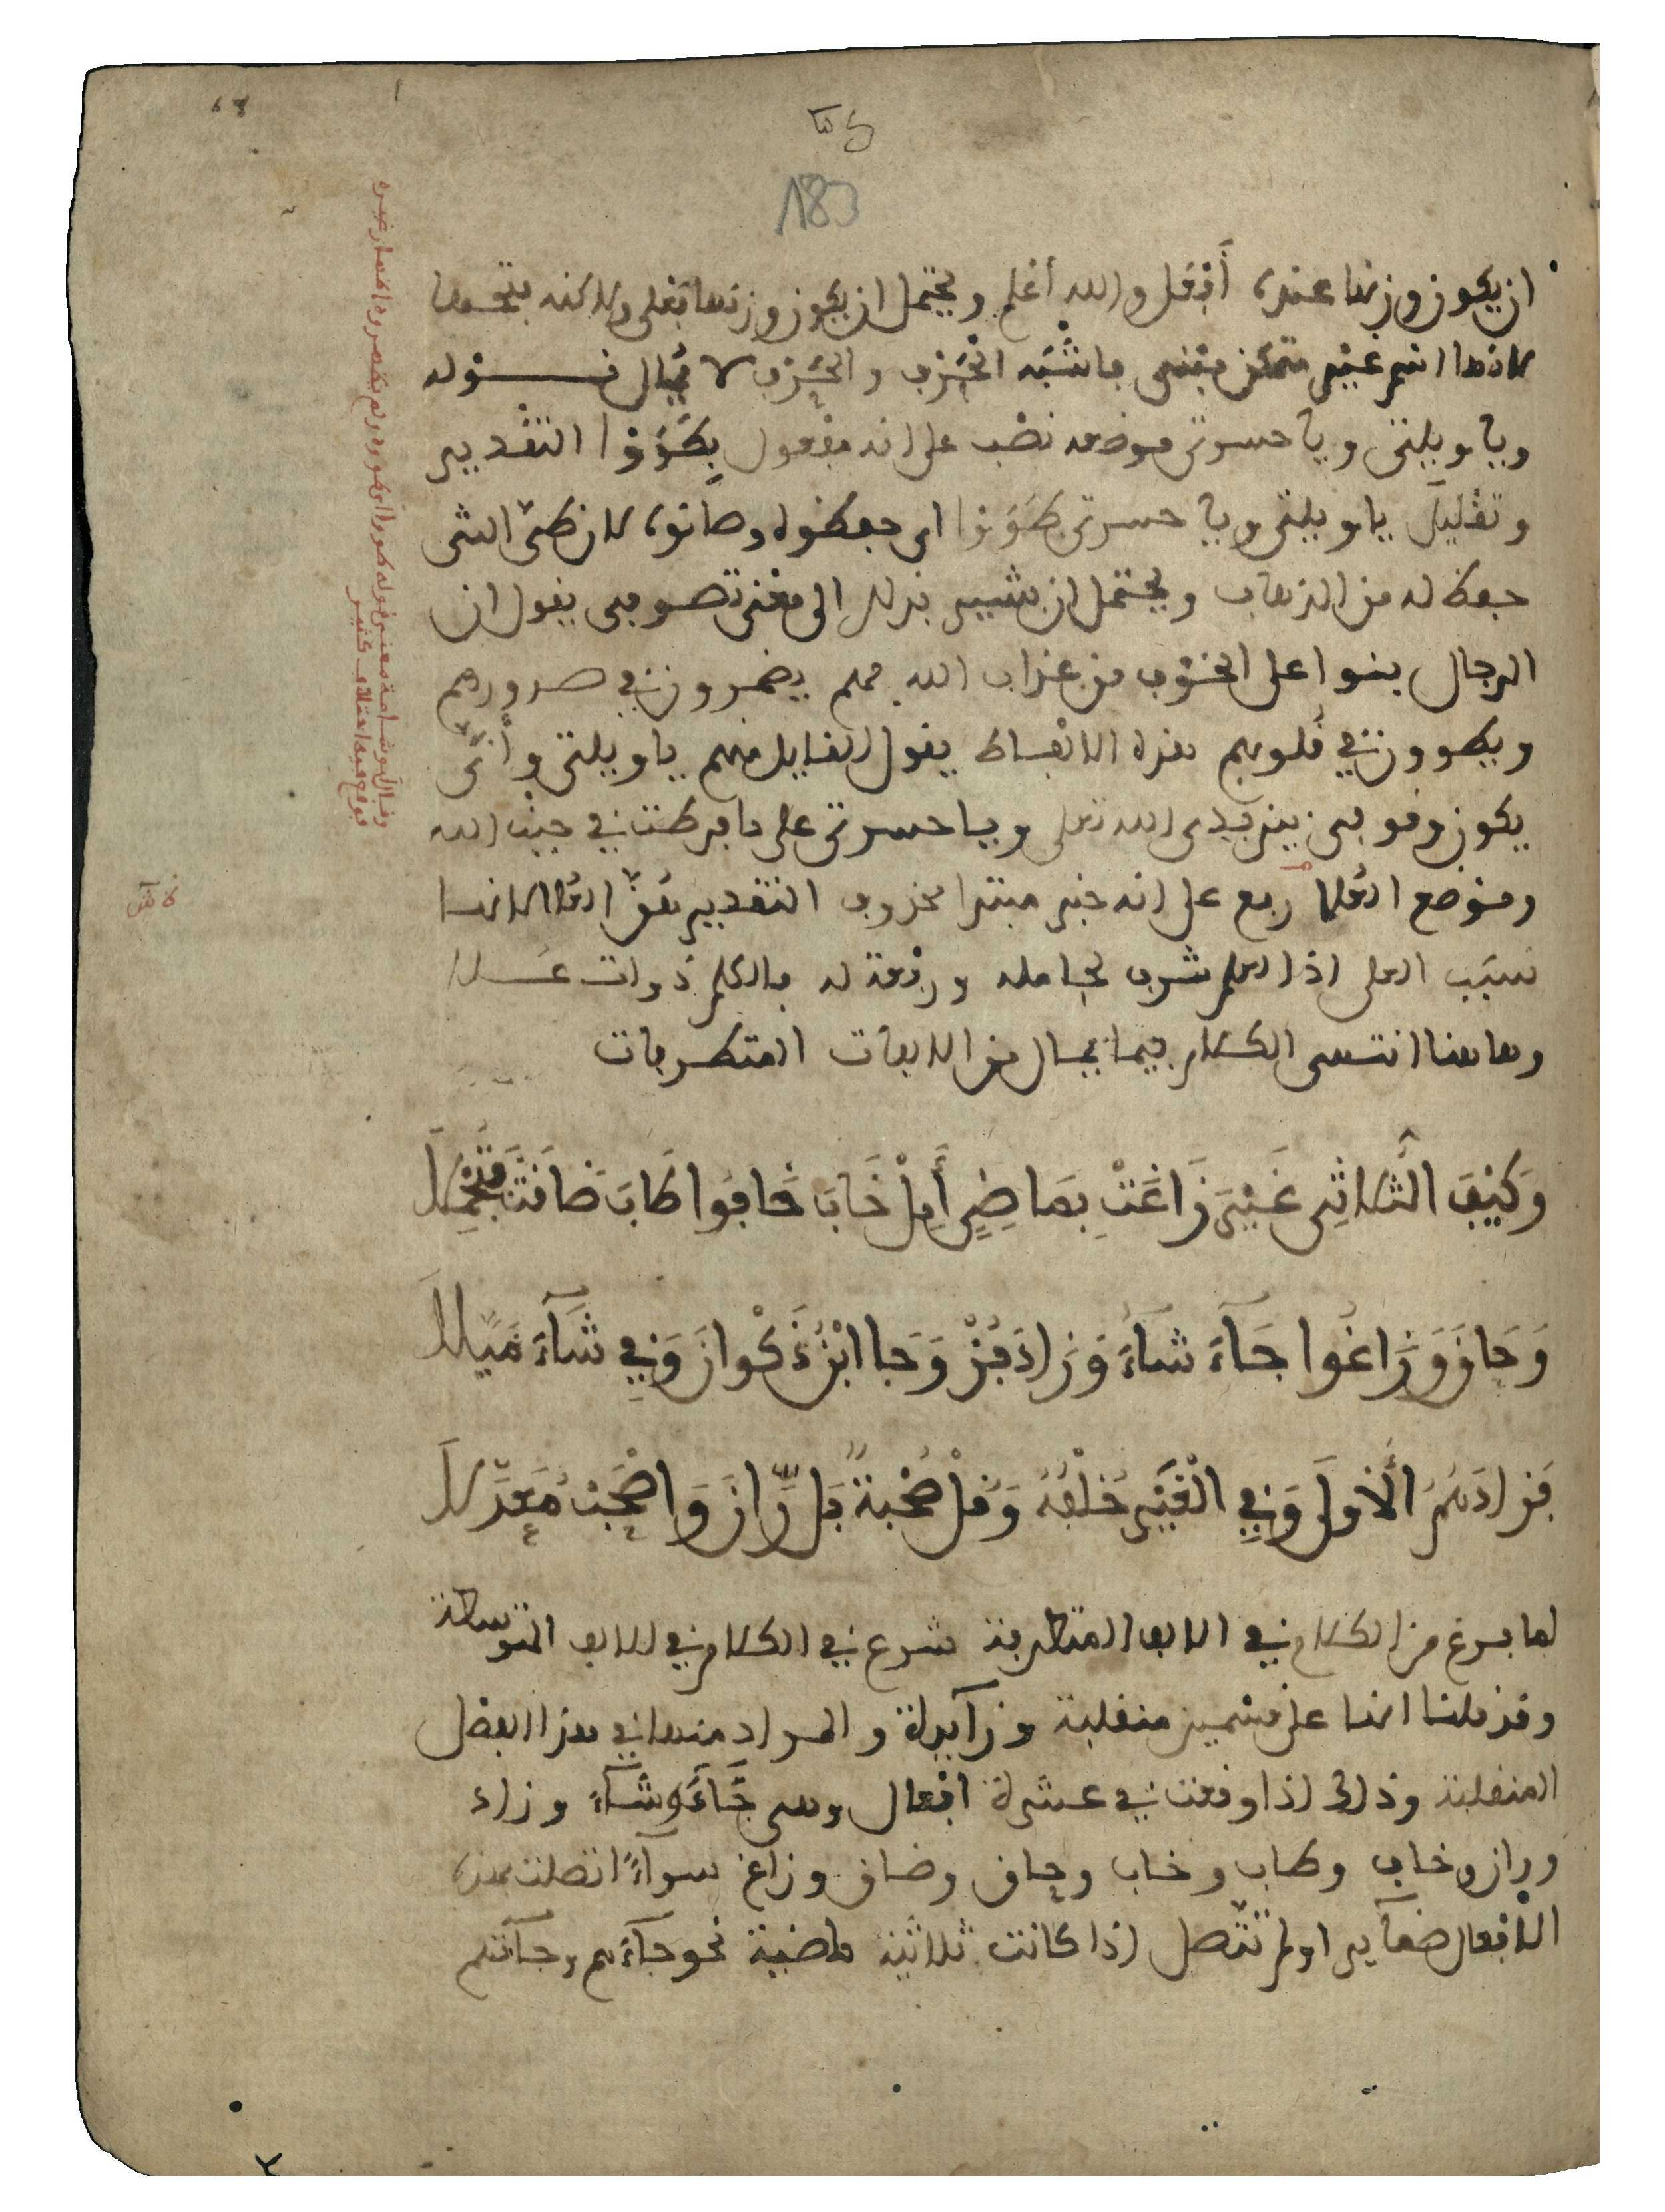 183
ان يكون وزنها عنده أفعل والله أعلم ويحتمل ان يكون وزنها فعلى ولاكنه
لانها اسم غير متمكن مبنى فاشبه الحرف والحرف لا يمال قوله
ويا ويلتى ويا حسرتى موضعه نصب على انه مفعول بطووا التقدير
وتقليل يا ويلتى ويا حسرتى طووا اى حفظوه وصانوه لان طى الشى
حفظ له من الذهاب ويحتمل ان يشير بذلك الى معنى تصوفى يقول ان
الرجال بنوا على الخوف من عذاب الله فهم يضمرون فى صدورهم
ويطوون فى قلوبهم هذه الالفاظ يقول القايل منهم يا ويلتى وأنى
يكون وقوفى بين يدى الله تعلى ويا حسرتى على ما فرطت فى جنب الله
وموضع العلا رفع على انه خبر مبتدا محذوف التقدير هو العلا لانها
سبب العلى اذ العلم شرف لحامله ورفعة له قوله
وهاهنا انتهى الكلام فيما يمال من الالفات المتطرفات
وَكَيْفَ الثُّلَاثِى غَيْرَ زَاغَتْ بِمَاضِىٍ أَمِلْ خَابَ خَافُوا طَابَ ضَاقَتْ فَتُجْمِلَا
وَحَاقَ وَزَاغُوا جَآءَ شَآءَ وَزَادَ فُزْ وَجَا ابْنُ ذَكْوَانَ وَفِى شَآءَ مَيَّلَا
فَزَادَهُمُ الْأُولَى وَفِى الْغَيْرِ خُلْفُهُ وَقُلْ صُحْبَةٌ بَل رَّانَ وَاصْحَبْ مُعَدَّلَا
لما فرغ من الكلام فى الالف المتطرفة شرع فى الكلام فى الالف المتوسطة
وقد قلنا انها على قسمين منقلبة وزآيدة والمراد منها فى هذا الفصل
المنقلبة وذلك اذا وقعت فى عشرة افعال وهى جَآءَ وشَآءَ وزاد
وران وخاف وطاب وخاب وحاق وضاق وزاغ سوآءً اتصلت بهذه
الافعال ضمآير او لم تتصل اذا كانت ثلاثية ماضية نحو جآءهم وجآءتهم